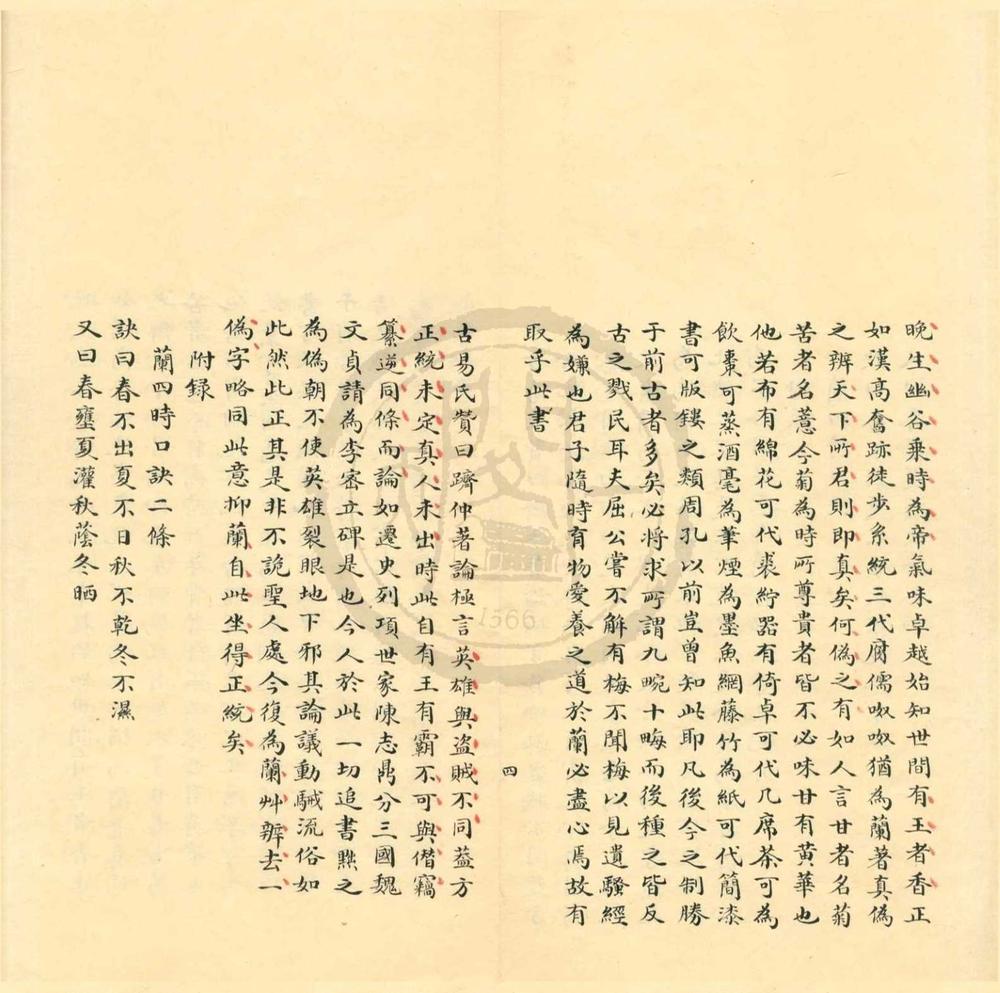 晚生幽谷乗時為帝氣味卓越始知世間有王者香正
如漢高奮跡徒步系統三代腐儒呶呶猶為蘭著真偽
之辨天下所君則即真矣何偽之有如人言甘者名菊
苦者名薏今菊為時所尊貴者皆不必味甘有黄華也
他若布有綿花可代裘紵器有倚卓可代几席茶可為
飲棗可蒸酒毫為筆煙為墨魚網藤竹為紙可代簡漆
書可版鏤之類周孔以前豈曽知此耶凡後今之制勝
于前古者多矣必將求所謂九畹十畮而後種之皆反
古之戮民耳夫屈公嘗不解有梅不聞梅以見遺騷經
為嫌也君子隨時育物愛養之道於蘭必盡心焉故有
取乎此書
四
古易氏贊曰躋仲著論極言英雄與盜賊不同葢方
正統未定真人未出時此自有王有霸不可與僭竊
纂逆同條而論如遷史列項世家陳志鼎分三國魏
文貞請為李宻立碑是也今人於此一切追書㸃之
為偽朝不使英雄裂眼地下邪其論議動駴流俗如
此然此正其是非不詭聖人處今復為蘭艸辨去一
偽字略同此意抑蘭自此坐得正統矣
附録
蘭四時口訣二條
訣曰春不出夏不日秋不乾冬不濕
又曰春壅夏灌秋蔭冬晒
1566